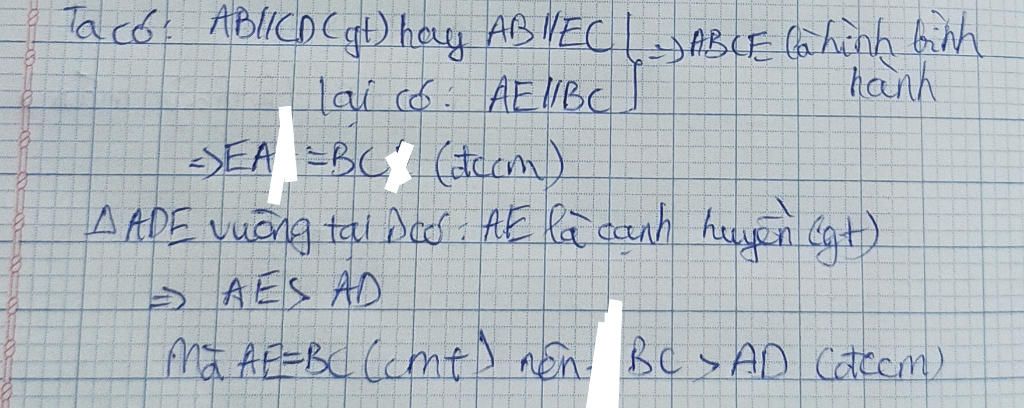 Ta có: AB//CD (gt) hay AB//EC } => ABCE là hình bình
lại có: AE//BC hành
=> EA = BC (đccm)
△ADE vuông tại D có: AE là cạnh huyền (gt)
=> AE > AD
Mà AE=BC (cmt) nên BC > AD (đccm)